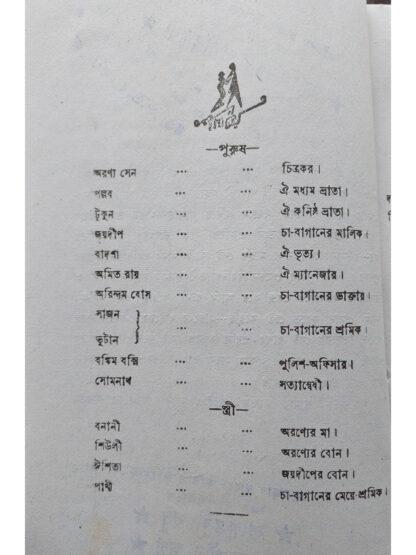 —পুরুষ—
অরণ্য সেন ... ... চিত্রকর।
পল্লব ... ... ঐ মধ্যম ভ্রাতা।
টুকুন ... ... ঐ কনিষ্ঠ ভ্রাতা।
জয়দীপ ... ... চা-বাগানের মালিক।
বাদশা ... ... ঐ ভৃত্য।
অমিত রায় ... ... ঐ ম্যানেজার।
অরিন্দম বোস ... ... চা-বাগানের ডাক্তার।
সাজন
ভূটান } ... ... চা-বাগানের শ্রমিক।
বঙ্কিম বক্সি ... ... পুলিশ-অফিসার।
সোমনাথ ... ... সত্যান্বেষী।
—স্ত্রী—
বনানী ... ... অরণ্যের মা।
শিউলী ... ... অরণ্যের বোন।
ঈশিতা ... ... জয়দীপের বোন।
পাখী ... ... চা-বাগানের মেয়ে-শ্রমিক।